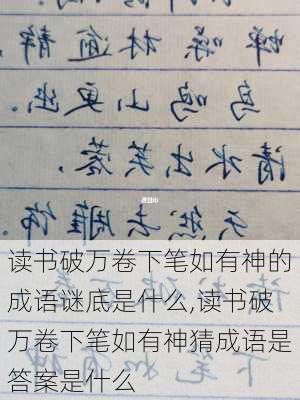 蝉噪林逾静
鸟鸣山更幽。
清水出芙蓉,
天然去雕饰
读书破万卷下笔如有神的
成语谜底是什么,读书破
万卷下笔如有神猜成语是
答案是什么